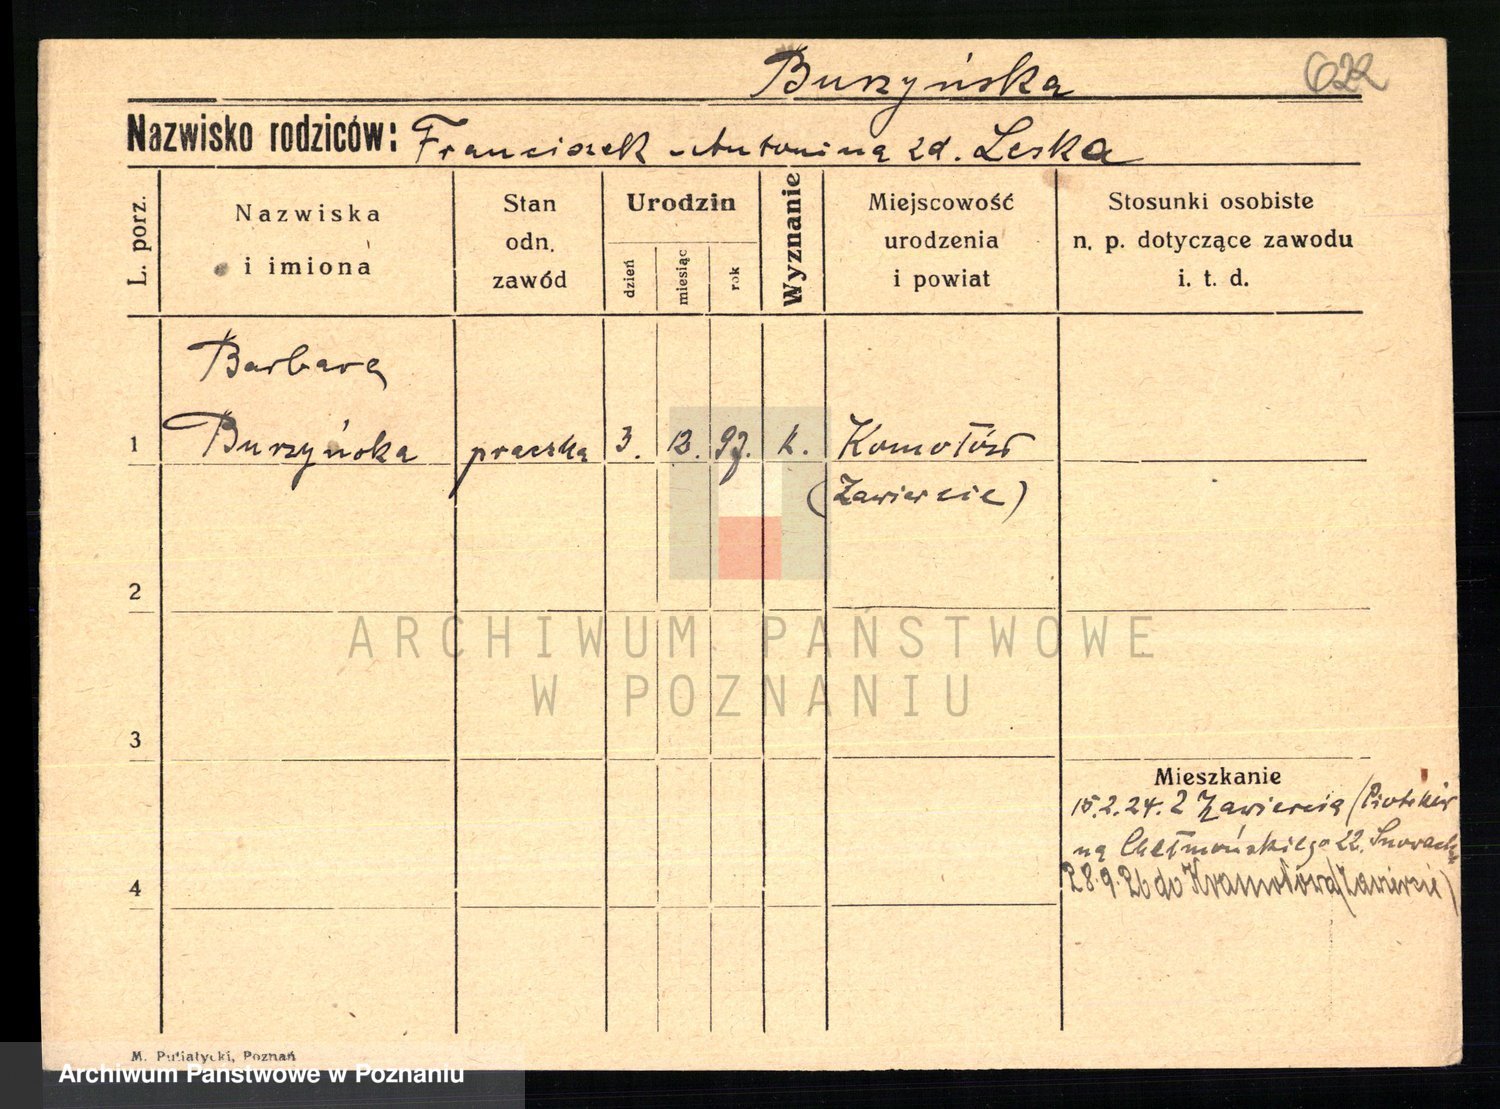 Burzyńska
622
Nazwisko rodziców: Franciszek Antonina zd. Leska
L. porz.
Nazwiska
i imiona
Stan
odn.
zawód
Urodzin
dzień
miesiąc
rok
Wyznanie
Miejscowość
urodzenia
i powiat
Stosunki osobiste
n. p. dotyczące zawodu
i. t. d.
Barbara
1 Burzyńska praczka 3. 12. 97. k.
(Zawiercie)
2
ARCHIWUM PAŃSTWOWE
W POZNANIU
3
Mieszkanie
15.2.24. z Zawiercia
Chełmońskiego 22.
4
28.9.26 do Kromołowa (Zawiercie)
M. Putiatycki, Poznań
Archiwum Państwowe w Poznaniu